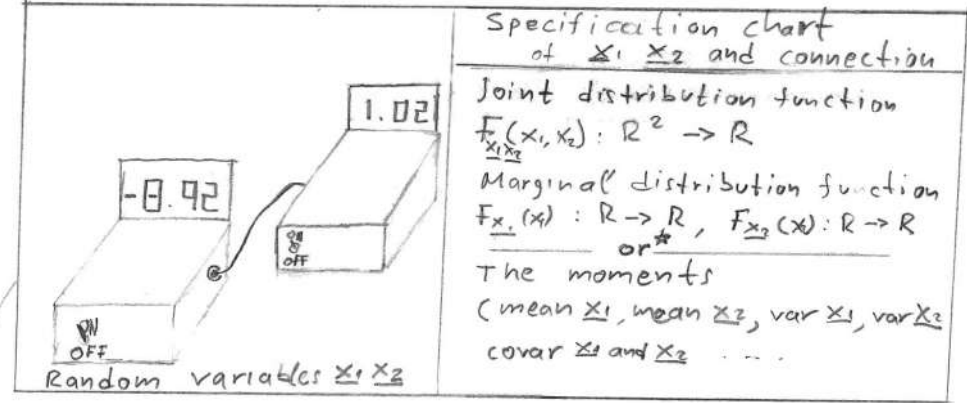 1.02
-8.92
ON
OFF
ON
OFF
Random variables x1 x2
Specification chart
of x1 x2 and connection
Joint distribution function
Fx1x2(x1, x2) : R² -> R
Marginal distribution function
Fx1(x) : R -> R, Fx2(x) : R -> R
or*
The moments
(mean x1, mean x2, var x1, var x2
covar x1 and x2 ....